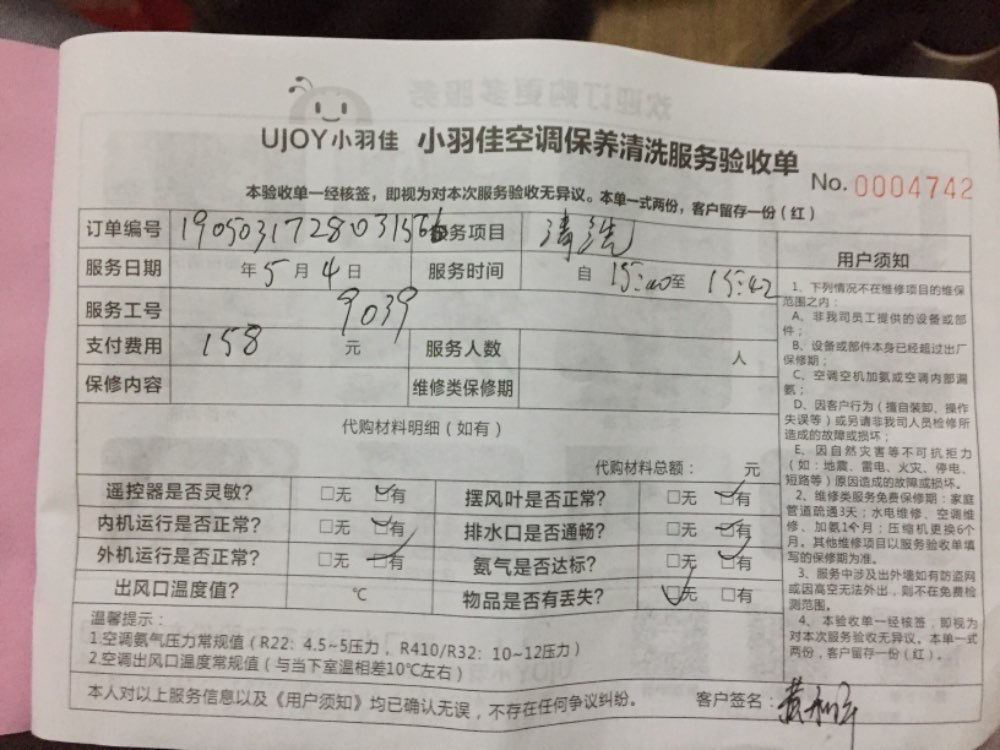 UJOY小羽佳 小羽佳空调保养清洗服务验收单
No. 0004742
本验收单一经核签，即视为对本次服务验收无异议。本单一式两份，客户留存一份（红）
订单编号 服务项目 清洗
服务日期 年5月4日 服务时间 自 15:40至 15:42
服务工号 9039
支付费用 158 元 服务人数 人
保修内容 维修类保修期
代购材料明细（如有）
代购材料总额： 元
遥控器是否灵敏？ □无 ☑有 摆风叶是否正常？ □无 ☑有
内机运行是否正常？ □无 ☑有 排水口是否通畅？ □无 ☑有
外机运行是否正常？ □无 ☑有 氨气是否达标？ □无 ☑有
出风口温度值？ ℃ 物品是否有丢失？ ☑无 □有
温馨提示：
1.空调氨气压力常规值（R22：4.5~5压力，R410/R32：10~12压力）
2.空调出风口温度常规值（与当下室温相差10℃左右）
本人对以上服务信息以及《用户须知》均已确认无误，不存在任何争议纠纷。 客户签名：
用户须知
1、下列情况不在维修项目的维保
范围之内：
A、非我司员工提供的设备或部
件；
B、设备或部件本身已经超过出厂
保修期；
C、空调空机加氨或空调内部漏
氨；
D、因客户行为（擅自装卸、操作
失误等）或另请非我司人员检修所
造成的故障或损坏；
E、因自然灾害等不可抗拒力
（如：地震、雷电、火灾、停电、
短路等）原因造成的故障或损坏。
2、维修类服务免费保修期：家庭
管道疏通3天；水电维修、空调维
修、加氨1个月；压缩机更换6个
月。其他维修项目以服务验收单填
写的保修期为准。
3、服务中涉及出外墙如有防盗网
或因高空无法外出，则不在免费检
测范围。
4、本验收单一经核签，即视为
对本次服务验收无异议。本单一式
两份，客户留存一份（红）。